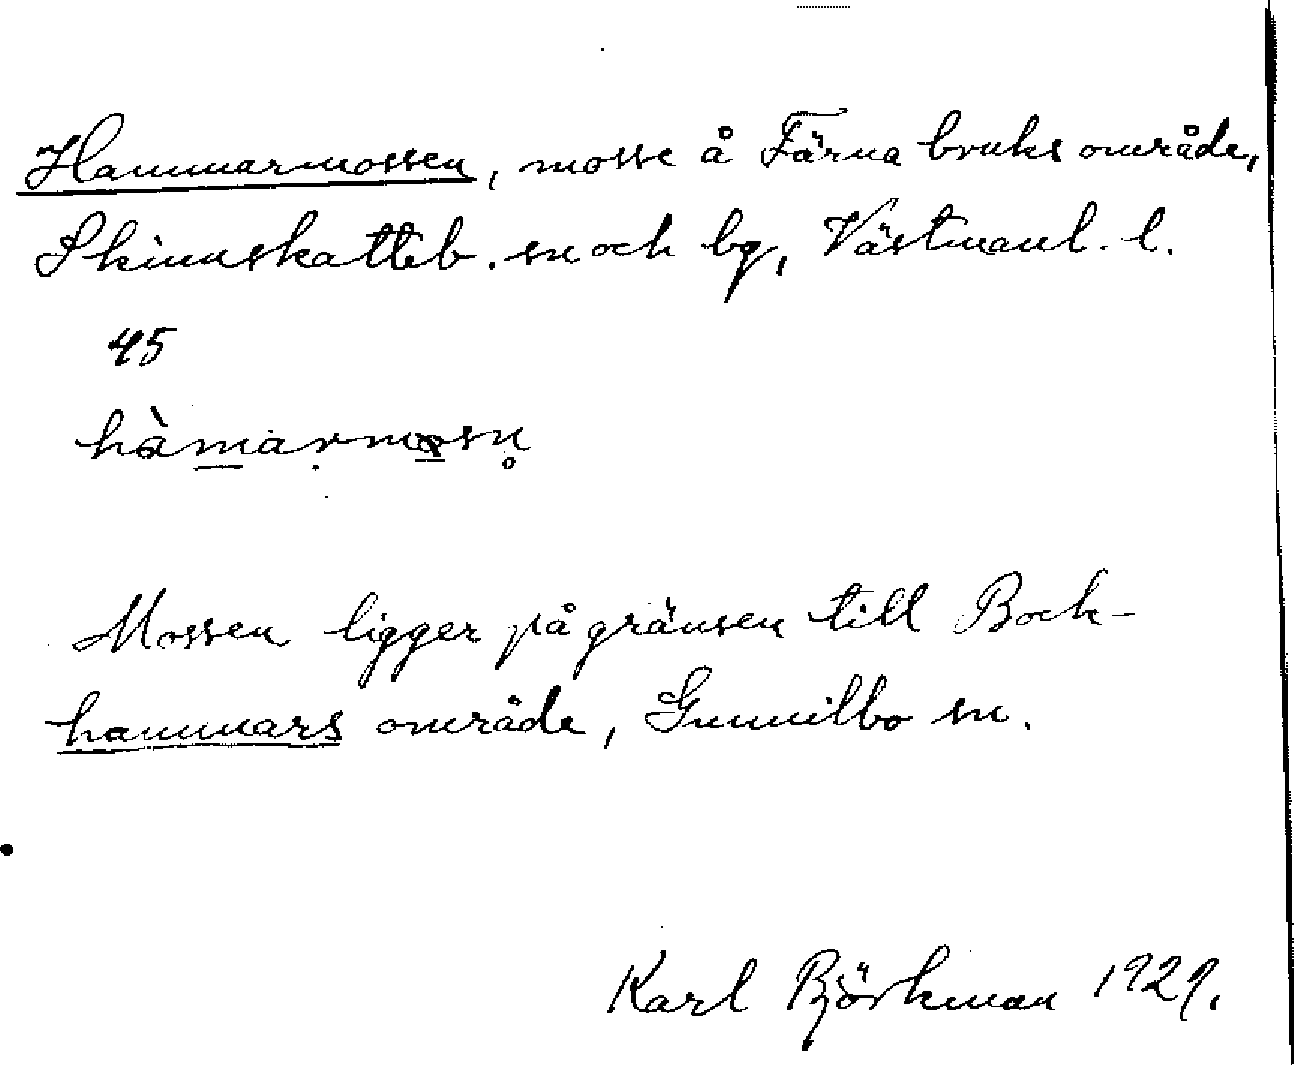 Hammarmossen, mosse å Färna bruks område,
Skinnskatteb. sn och bg, Västmanl. l.
45
hàmarmosn̥
Mossen ligger på gränsen till Bock-
hammars område, Gunnilbo sn.
Karl Björkman 1929.